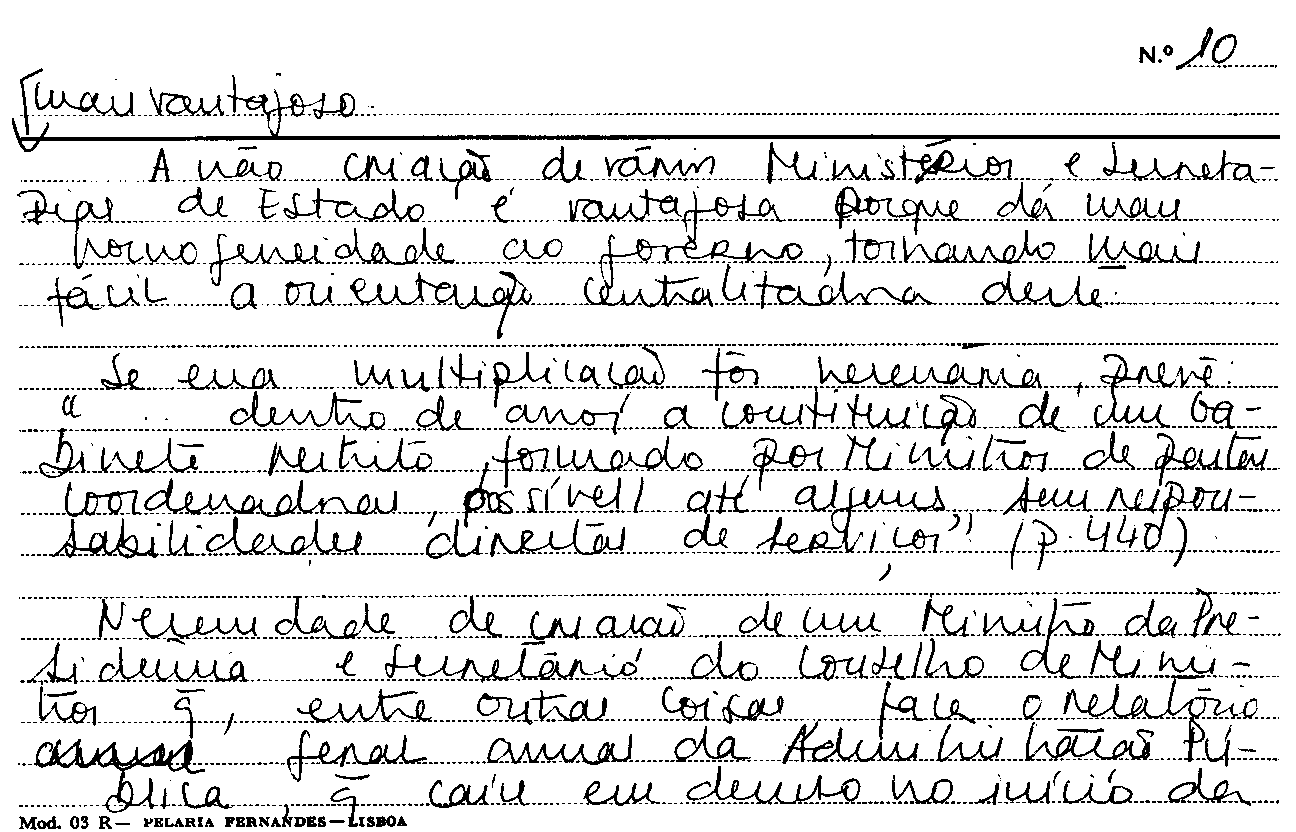 N.º 10
mais vantajoso.
A não criação de vários Ministérios e Secreta-
rias de Estado é vantajosa porque dá mais
homogeneidade ao governo, tornando mais
fácil a orientação centralizadora deste.
Se essa multiplicação fôr necessária, prevê:
" ... dentro de anos, a constituição de um Ga-
binete restrito, formado por Ministros de pastas
coordenadoras, possível/ até alguns, sem respon-
sabilidades directas de serviços" (p. 440)
Necessidade de criação de um Ministro da Pre-
sidência e Secretário do Conselho de Minis-
tros q̄, entre outras coisas, faça o relatório
geral anual da Administração Pú-
blica, q̄ caiu em desuso no início da
Mod. 03 R— PELARIA FERNANDES—LISBOA